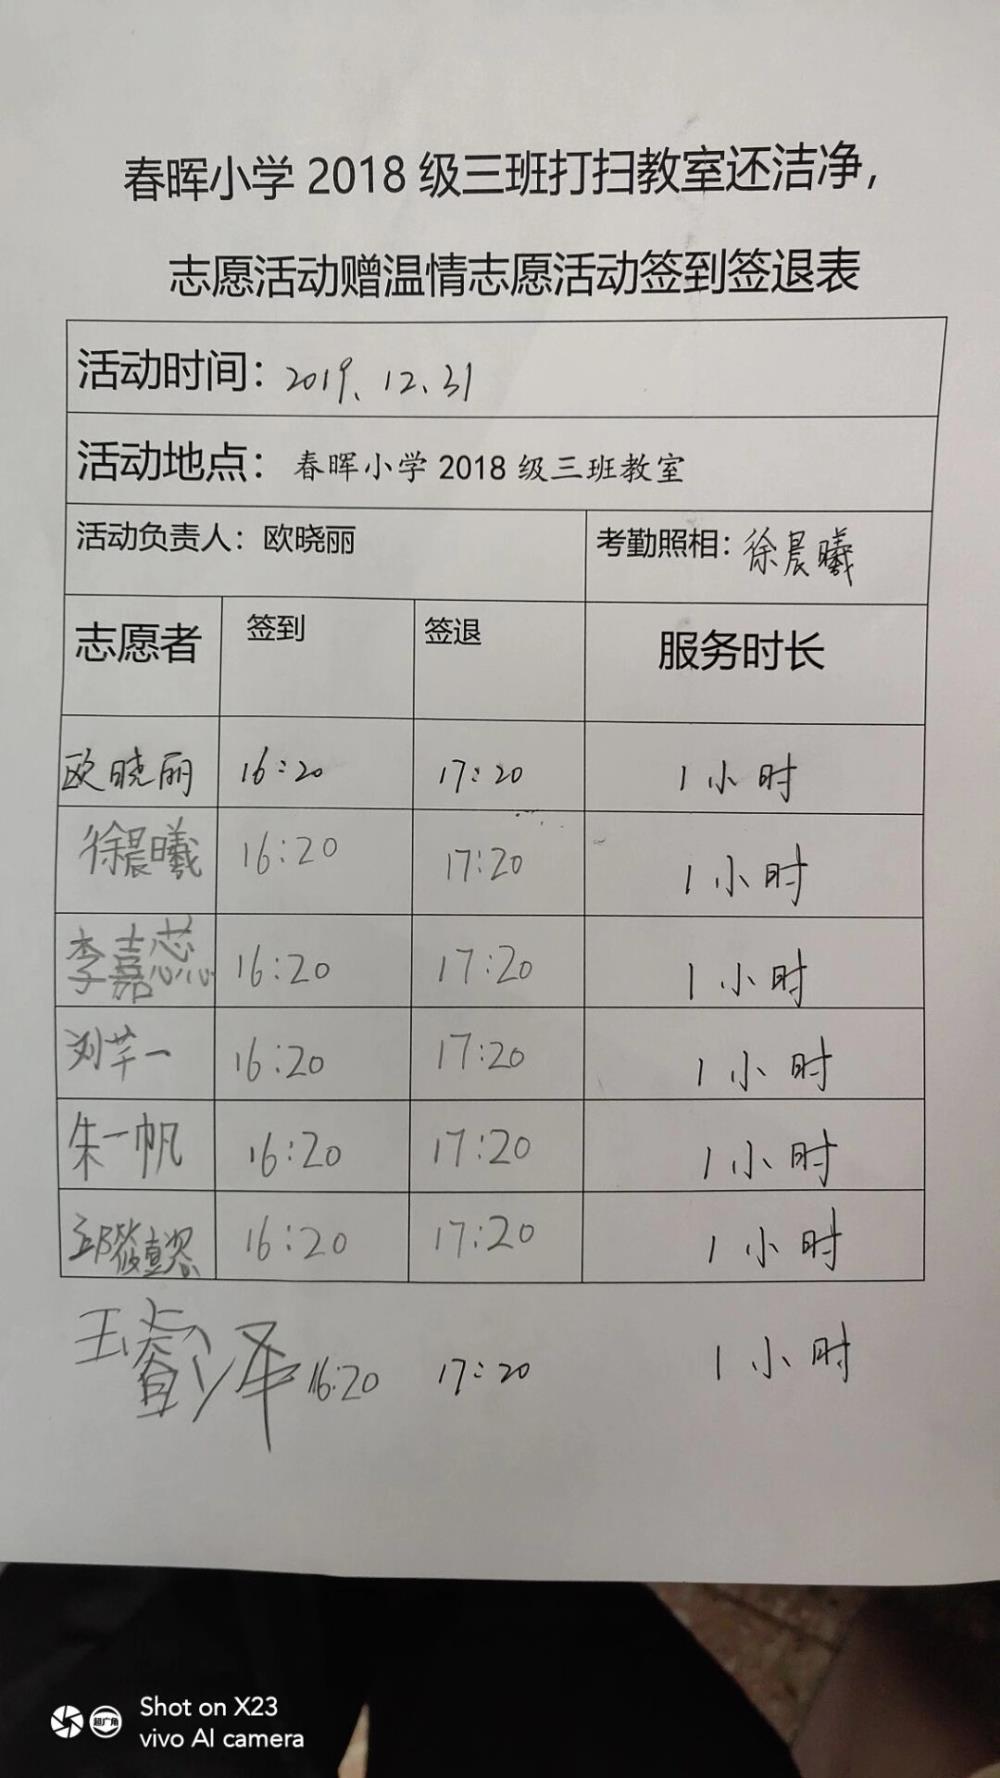 春晖小学 2018 级三班打扫教室还洁净，
志愿活动赠温情志愿活动签到签退表
活动时间：2019、12、31
活动地点：春晖小学 2018 级三班教室
活动负责人：欧晓丽 考勤照相：徐晨曦
志愿者 签到 签退 服务时长
欧晓丽 16:20 17:20 1小时
徐晨曦 16:20 17:20 1小时
李嘉蕊 16:20 17:20 1小时
刘芊一 16:20 17:20 1小时
朱一帆 16:20 17:20 1小时
16:20 17:20 1小时
王睿泽 16:20 17:20 1小时
超广角
Shot on X23
vivo AI camera